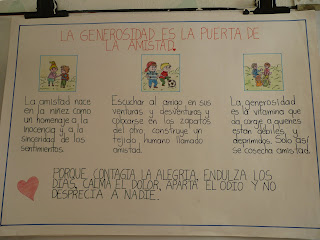 LA GENEROSIDAD ES LA PUERTA DE
LA AMISTAD.
La amistad nace
en la niñez como
un homenaje a la
inocencia y a la
sinceridad de los
sentimientos.
Escuchar al amigo en sus
venturas y desventuras y
colocarse en los zapatos
del otro, construye un
tejido humano llamado
amistad.
La generosidad
es la vitamina que
da coraje a quienes
están débiles y
deprimidos. Solo así
se cosecha amistad.
PORQUE, CONTAGIA LA ALEGRIA, ENDULZA LOS
DIAS, CALMA EL DOLOR, APARTA EL ODIO Y NO
DESPRECIA A NADIE.